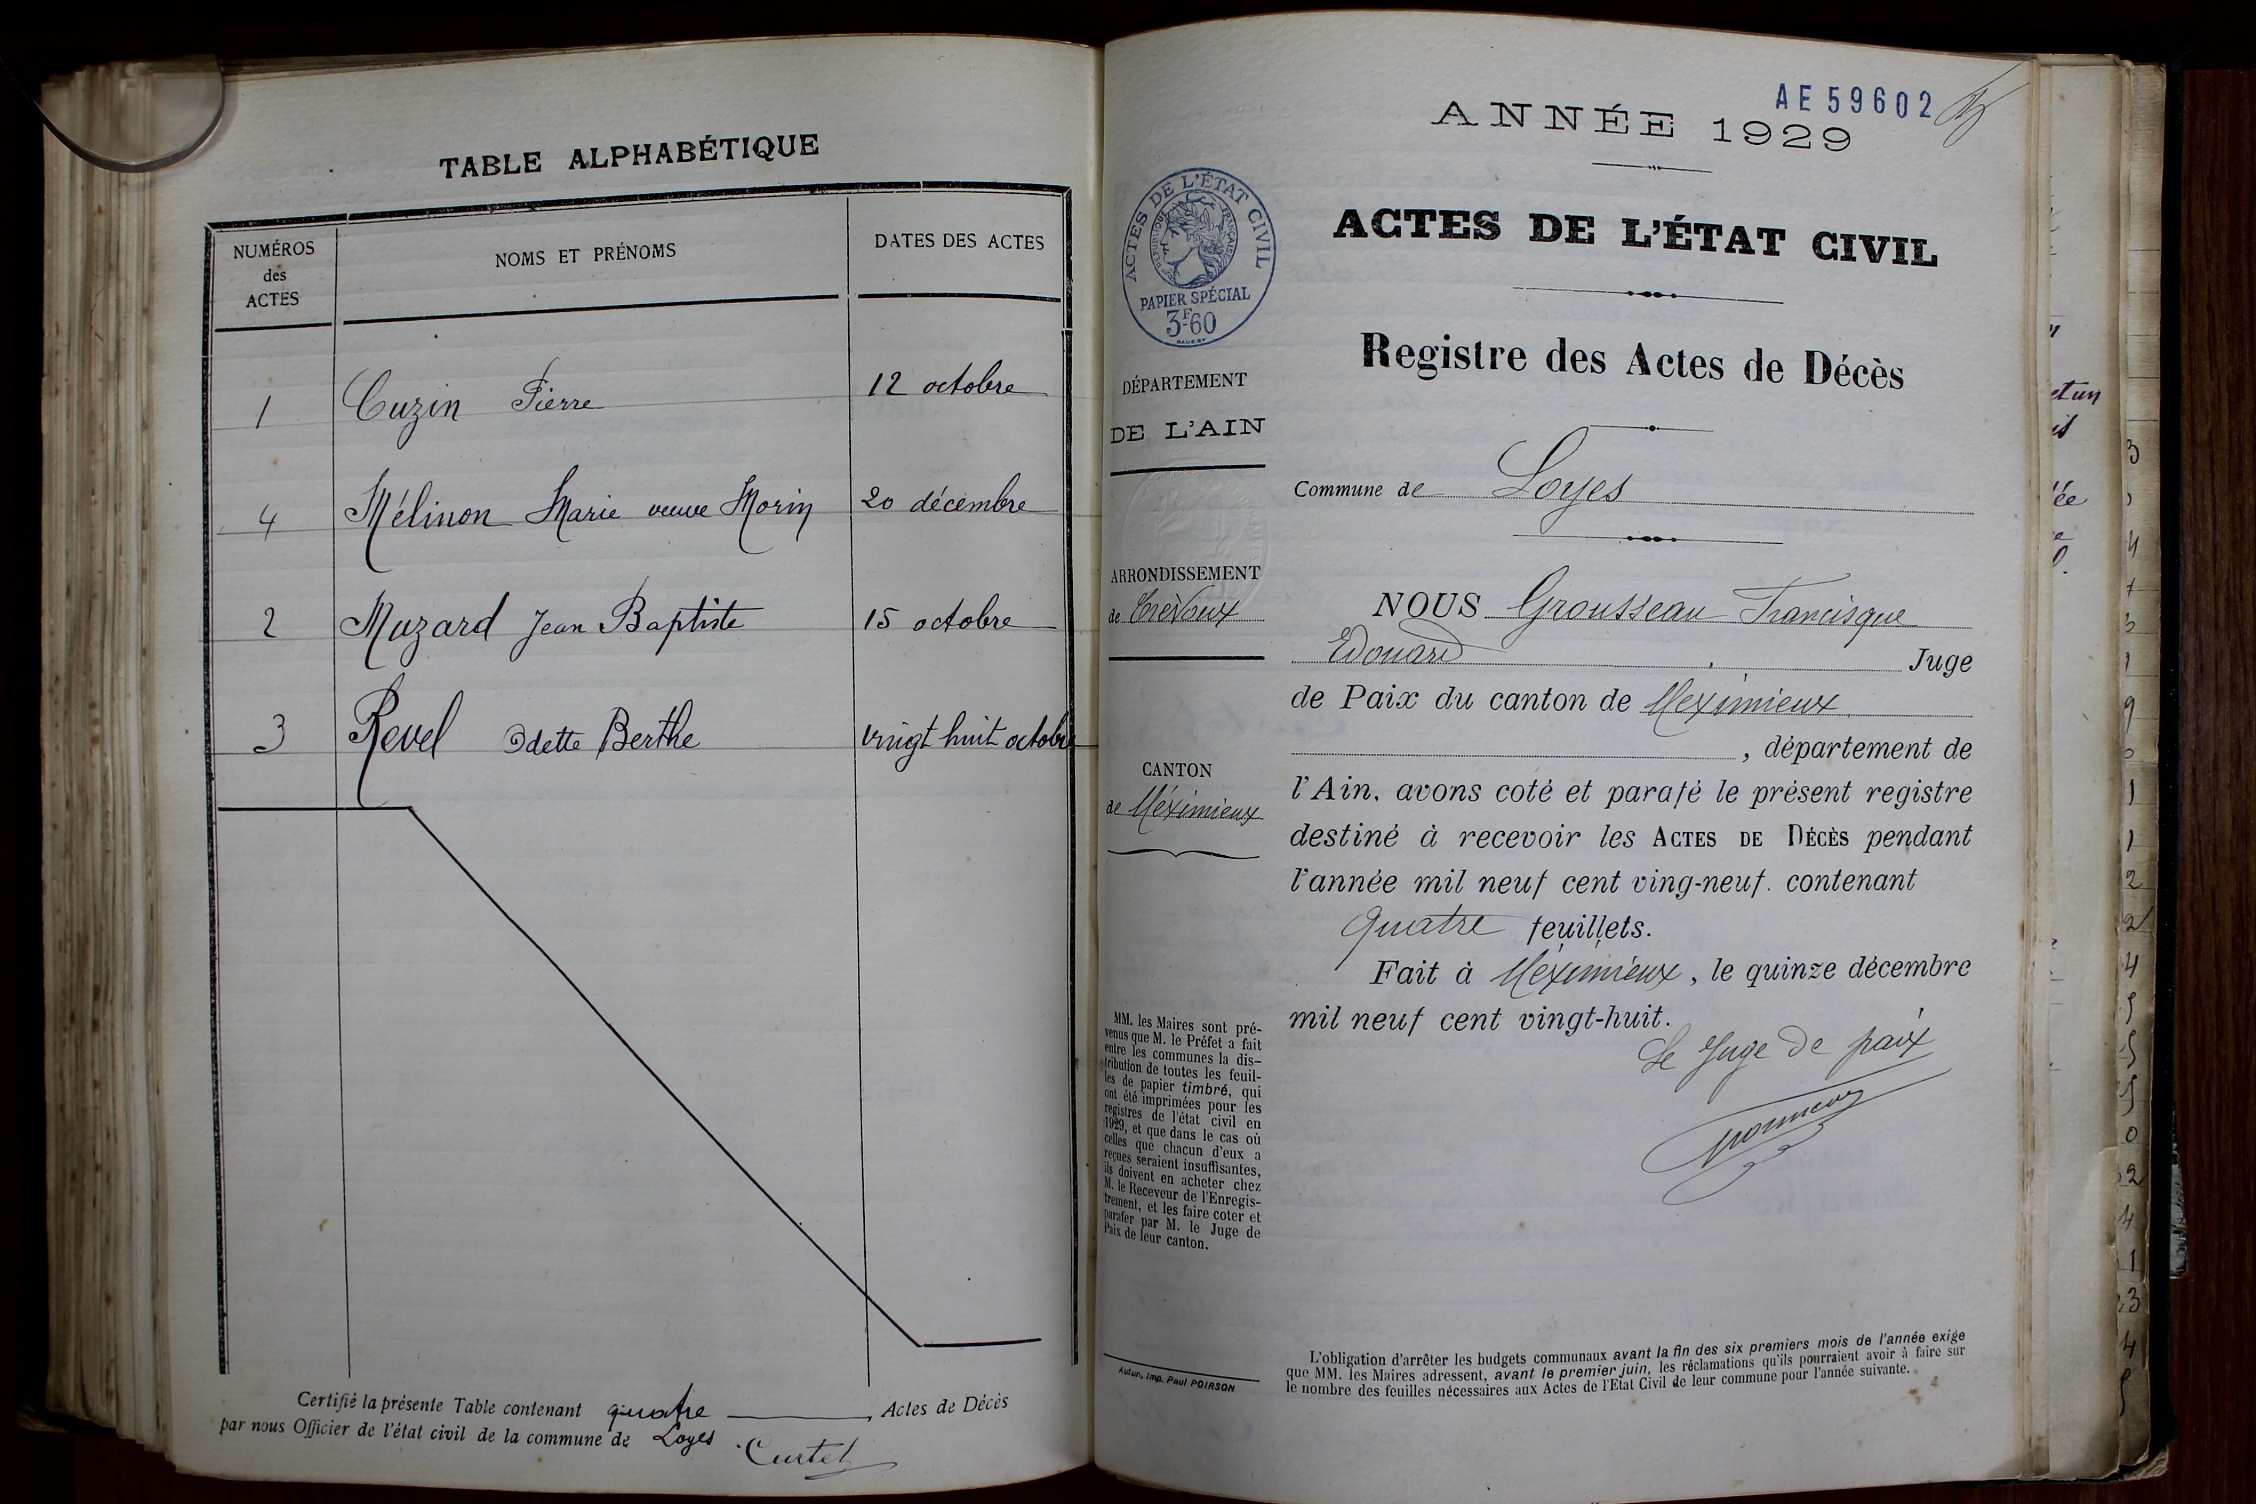 TABLE ALPHABÉTIQUE
NUMÉROS
des
ACTES
NOMS ET PRÉNOMS
DATES DES ACTES
1 Cuzin Pierre 12 octobre
4 Mélinon Marie veuve Morin 20 décembre
2 Muzard Jean Baptiste 15 octobre
3 Revel Odette Berthe vingt huit octobre
Certifié la présente Table contenant quatre Actes de Décès
par nous Officier de l'état civil de la commune de Loyes
Curtet
AE 59602
ANNÉE 1929
ACTES DE L'ÉTAT CIVIL
RÉPUBLIQUE FRANÇAISE
PAPIER SPÉCIAL
3F60
ACTES DE L'ÉTAT CIVIL
Registre des Actes de Décès
DÉPARTEMENT
DE L'AIN
Commune de Loyes
ARRONDISSEMENT
de Trévoux
CANTON
de Méximieux
NOUS Grousseau Francisque
Edouard Juge
de Paix du canton de Meximieux
, département de
l'Ain, avons coté et parafé le présent registre
destiné à recevoir les ACTES DE DÉCÈS pendant
l'année mil neuf cent ving-neuf. contenant
quatre feuillets.
Fait à Méximieux, le quinze décembre
mil neuf cent vingt-huit.
Le Juge de paix
MM. les Maires sont pré-
venus que M. le Préfet a fait
entre les communes la dis-
tribution de toutes les feuil-
les de papier timbré, qui
ont été imprimées pour les
registres de l'état civil en
1929, et que dans le cas où
celles que chacun d'eux a
reçues seraient insuffisantes,
ils doivent en acheter chez
M. le Receveur de l'Enregis-
trement, et les faire coter et
parafer par M. le Juge de
Paix de leur canton.
Autun, Imp. Paul POIRSON
L'obligation d'arrêter les budgets communaux avant la fin des six premiers mois de l'année exige
que MM. les Maires adressent, avant le premier juin, les réclamations qu'ils pourraient avoir à faire sur
le nombre des feuilles nécessaires aux Actes de l'Etat Civil de leur commune pour l'année suivante.